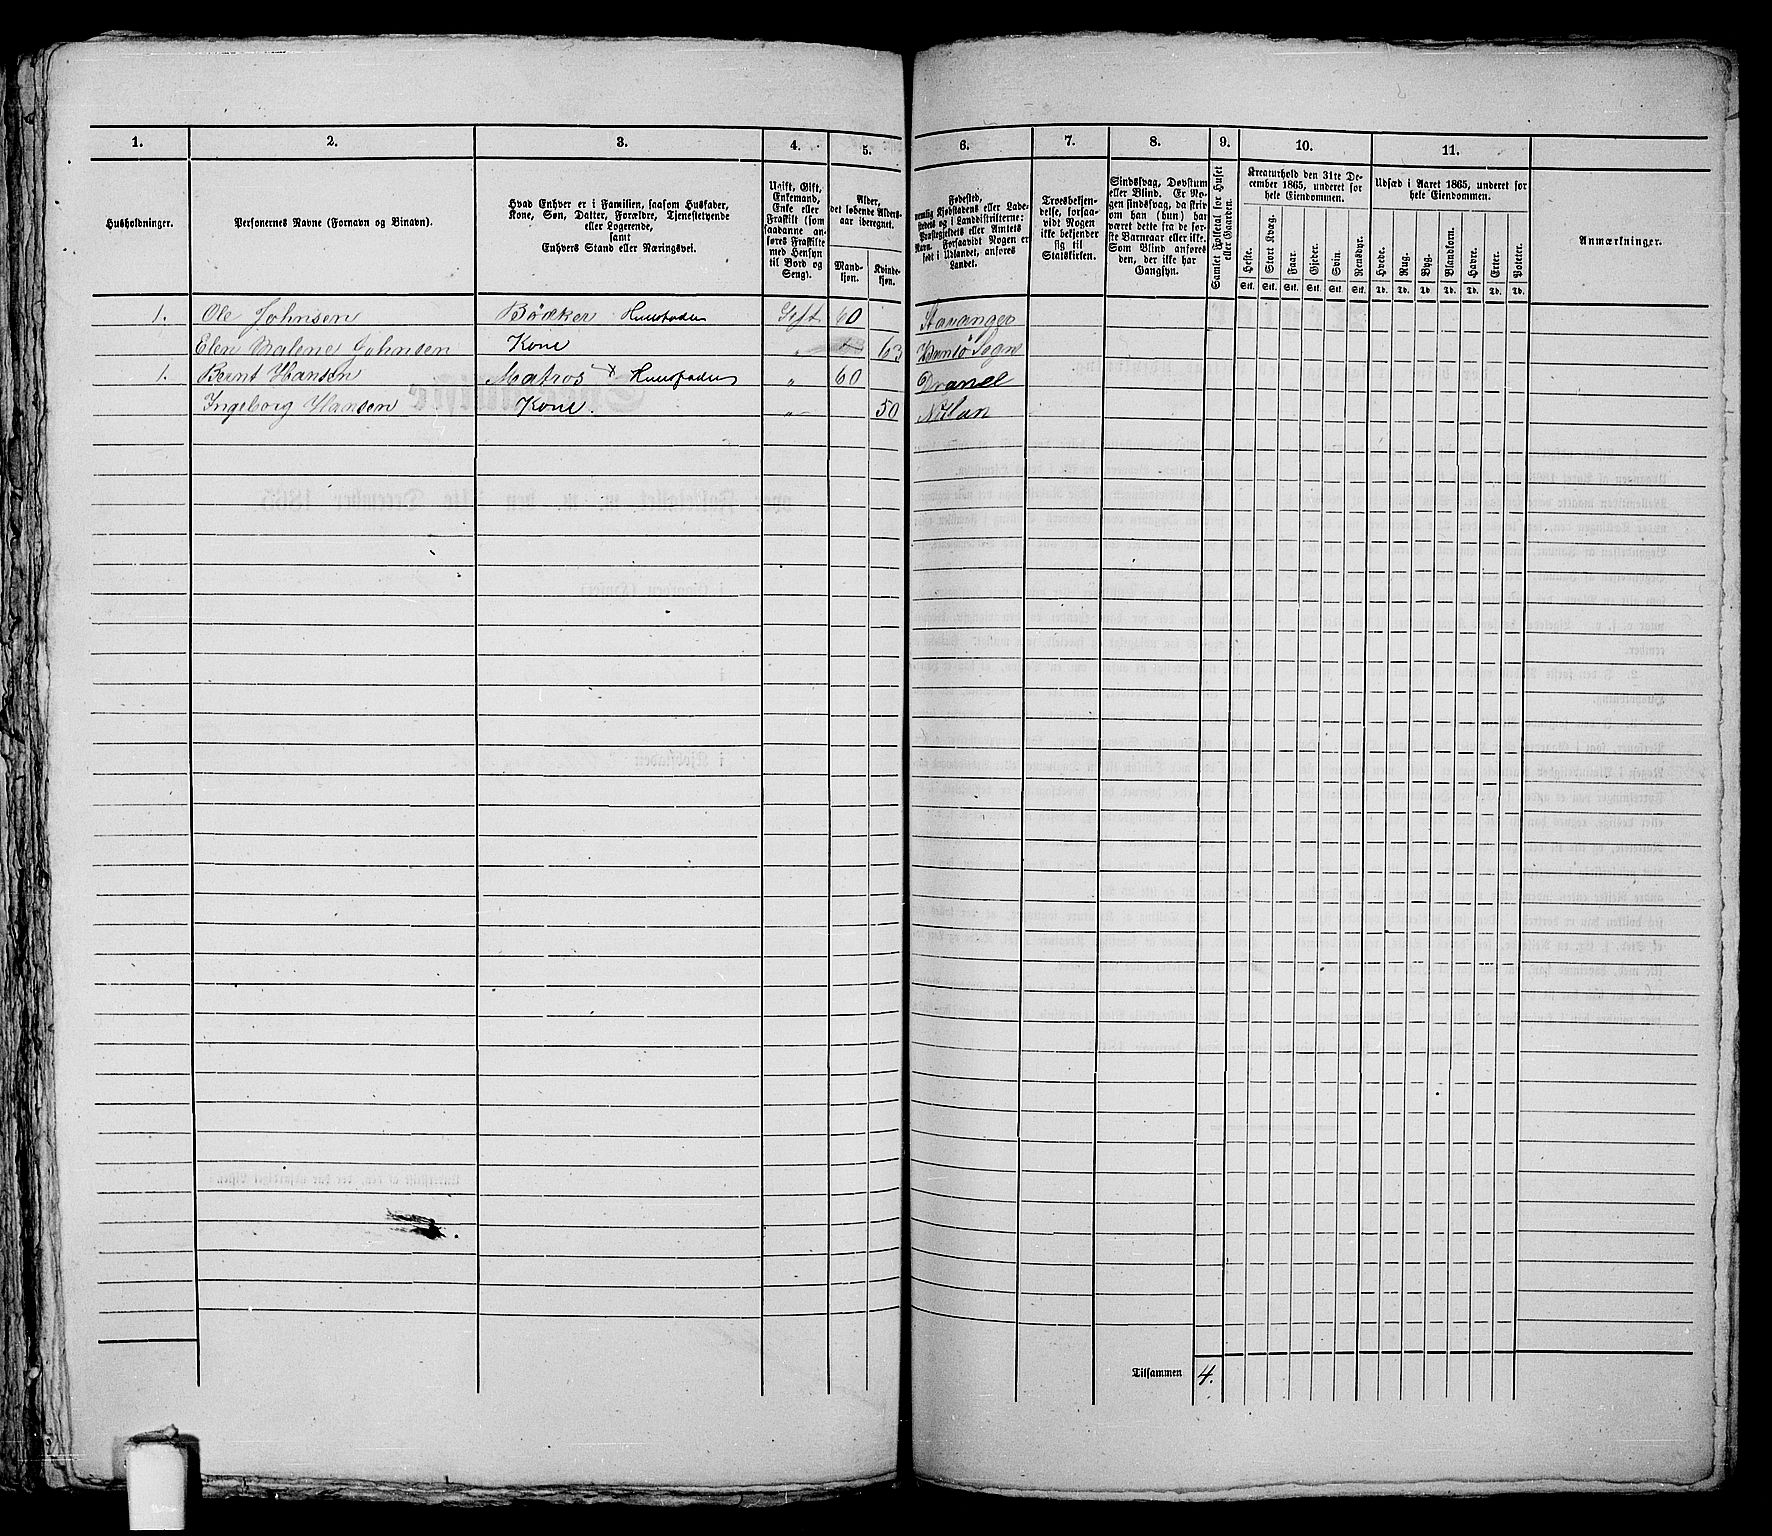 1. 2. 3. 4. 5. 6. 7. 8. 9. 10. 11.
Husholdninger.
Personernes Navne (Fornavn og Binavn).
Hvad Enhver er i Familien, saasom Husfader,
Kone, Søn, Datter, Forældre, Tjenestetyende
eller Logerende,
samt
Enhvers Stand eller Næringsvei.
Ugift, Gift,
Enkemand,
Enke eller
Fraskilt (som
saadanne an-
føres Fraskilte
med Hensyn
til Bord og
Seng).
Alder,
det løbende Alders-
aar iberegnet.
Mand-
kjøn.
Kvinde-
kjøn.
Fødested,
nemlig Kjøbstadens eller Lade-
stedets og i Landdistrikterne:
Præstegjeldets eller Amtets
Navn. Forsaavidt Nogen er
født i Udlandet, anføres
Landet.
Troesbekjen-
delse, forsaa-
vidt Nogen
ikke bekjender
sig til
Statskirken.
Sindssvag, Døvstum
eller Blind. Er No-
gen sindssvag, da skriv
om han (hun) har
været dette fra de før-
ste Barneaar eller ikke.
Som Blind anføres
den, der ikke har
Gangsyn.
Samlet Folketal for Huset
eller Gaarden.
Kreaturhold den 31te De-
cember 1865, underet for
hele Eiendommen.
Heste. Stort Kvæg. Faar. Gjeder. Svin. Rensdyr.
Stk. Stk. Stk. Stk. Stk. Stk.
Udsæd i Aaret 1865, underet for
hele Eiendommen.
Hvede. Rug. Byg. Blandkorn. Havre. Erter. Poteter.
Td. Td. Td. Td. Td. Td. Td.
Anmærkninger.
1. Ole Johnsen Bödker Huusfader Gift 60 Stavanger
Elen Malene Johnsen Kone " 63 Sogn
1. Bernt Hansen Matros x Huusfader " 60
Ingeborg Hansen Kone. " 50
Tilsammen 4.